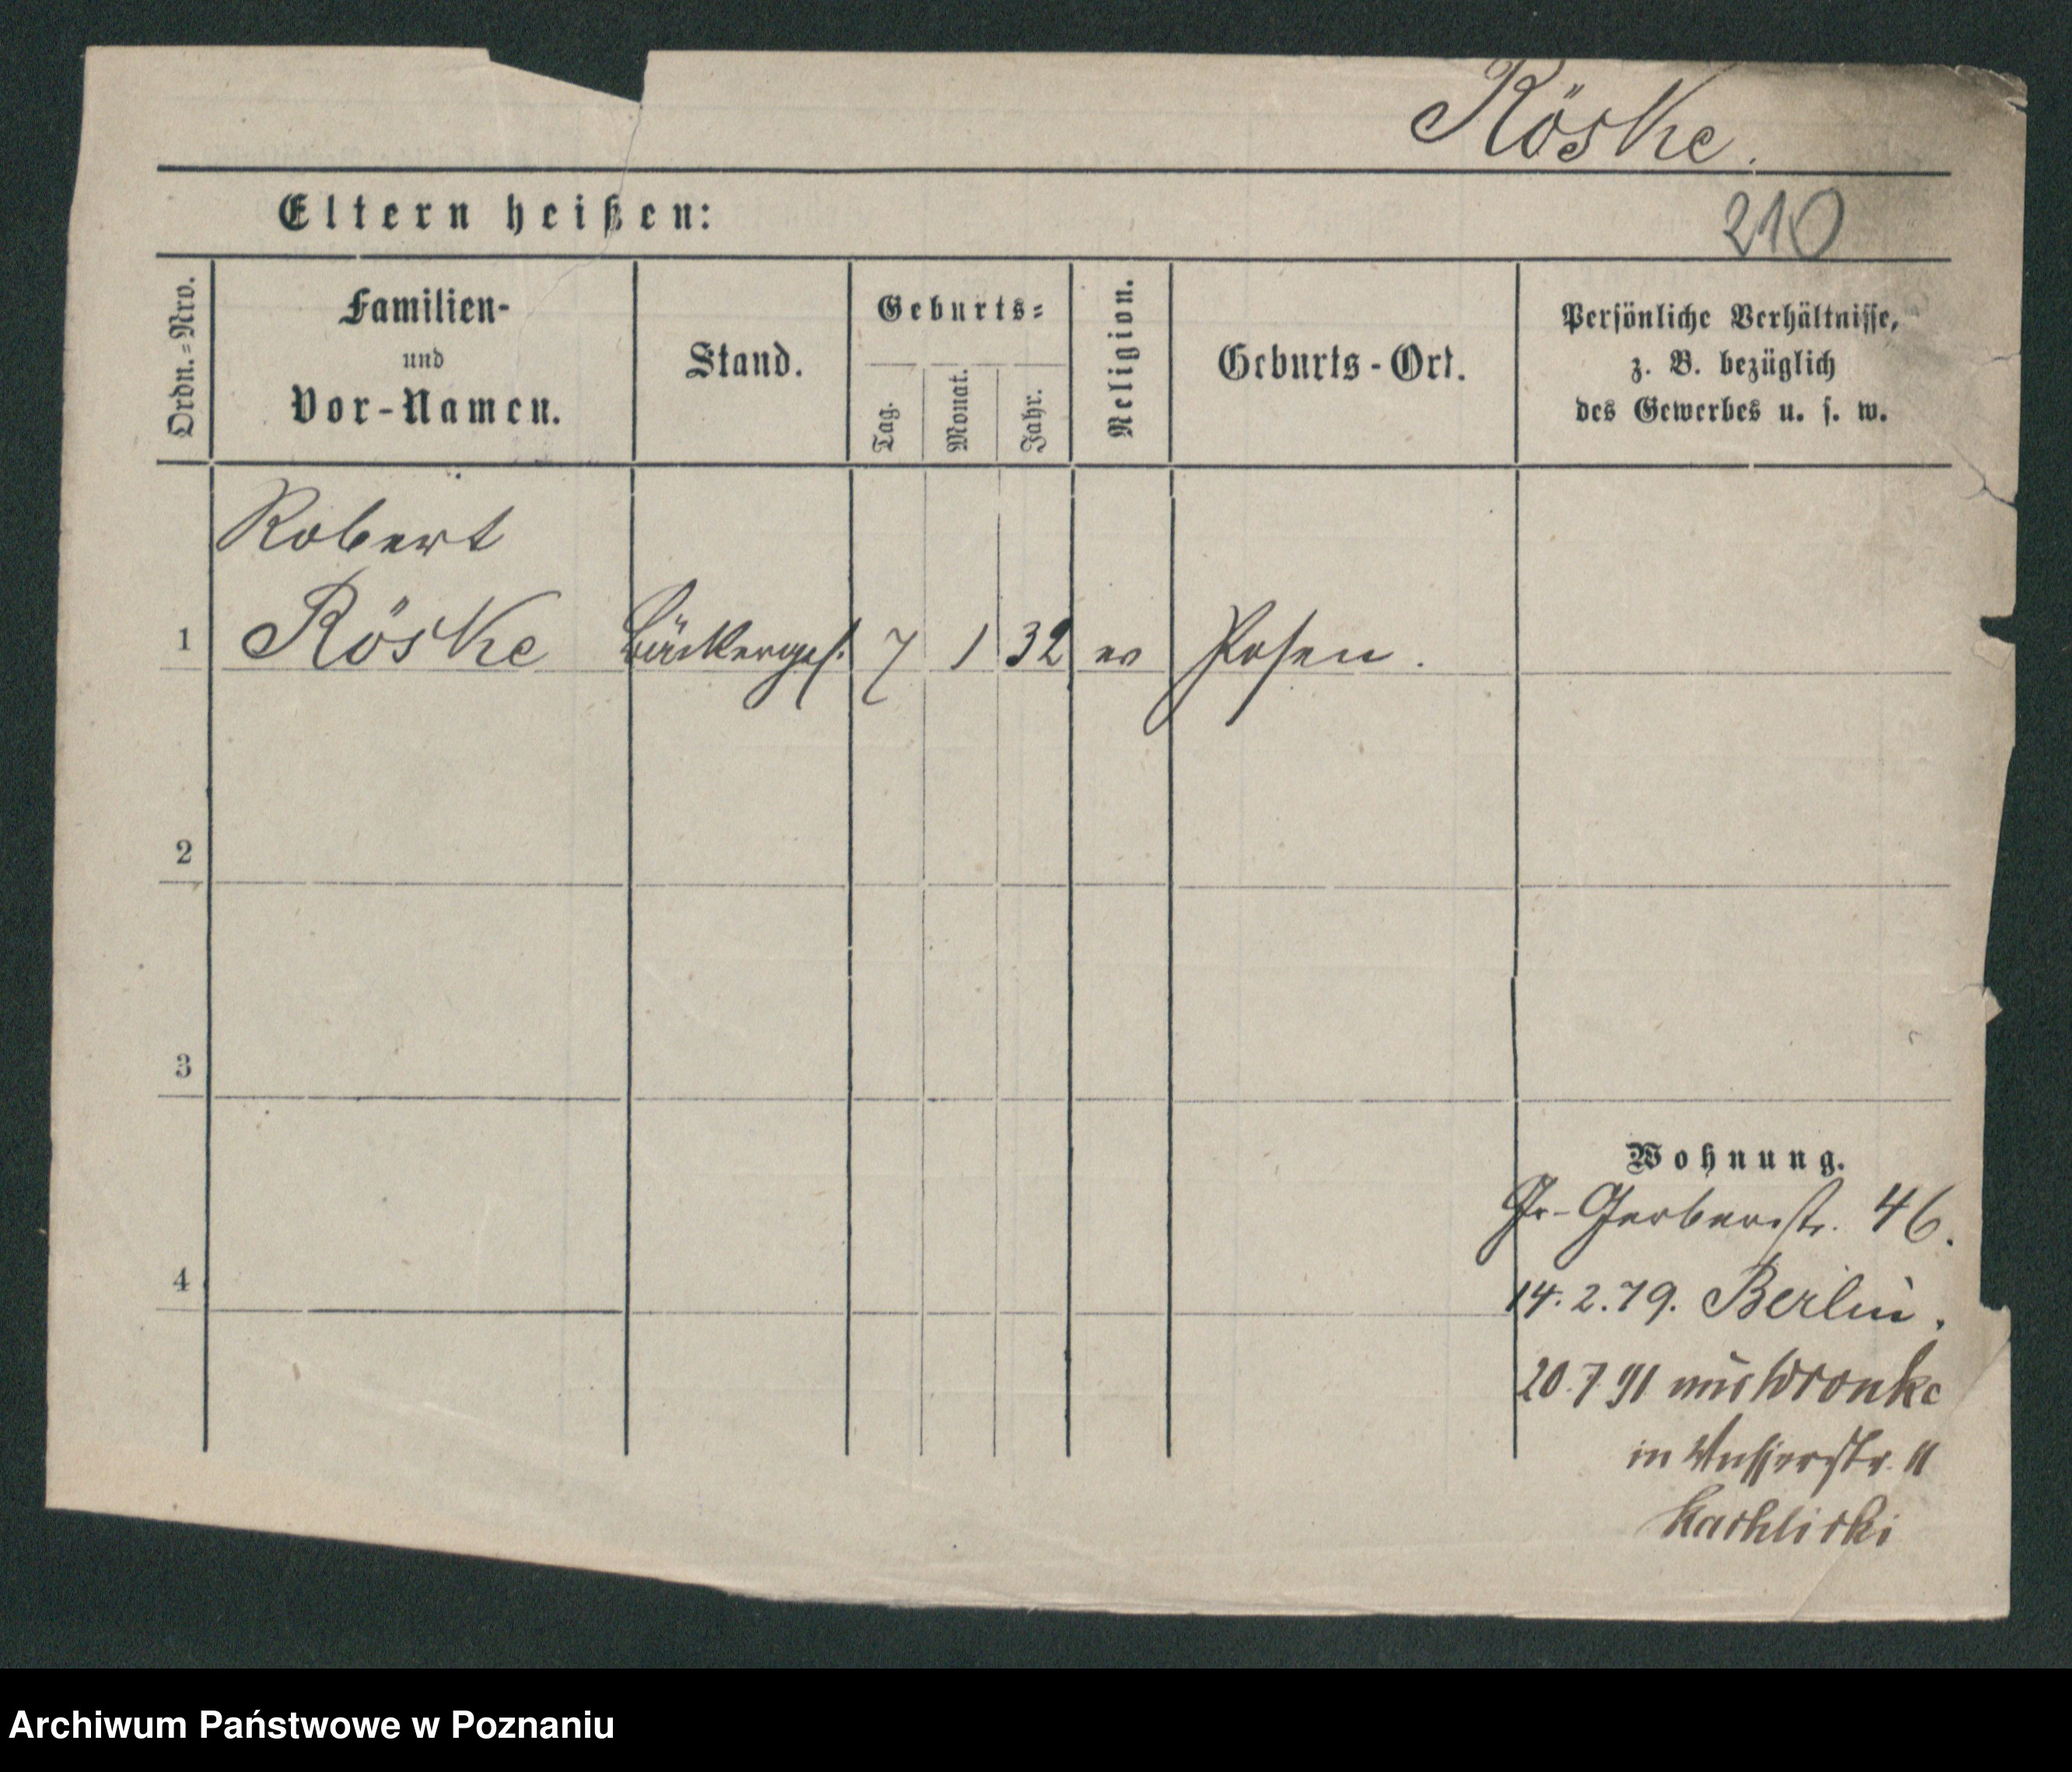 Röske.
Eltern heißen:
210
Ordn.=Nro.
Familien-
und
Vor-Namen.
Stand.
Geburts=
Tag.
Monat.
Jahr.
Religion.
Geburts-Ort.
Persönliche Verhältnisse,
z. B. bezüglich
des Gewerbes u. s. w.
Robert
1 Röske Bäckerges. 7 1 32 ev Posen.
2
3
4
Wohnung.
Gr-Gerberstr. 46.
14.2.79. Berlin.
20.7 91 aus Wronke
in Wasserstr. 11